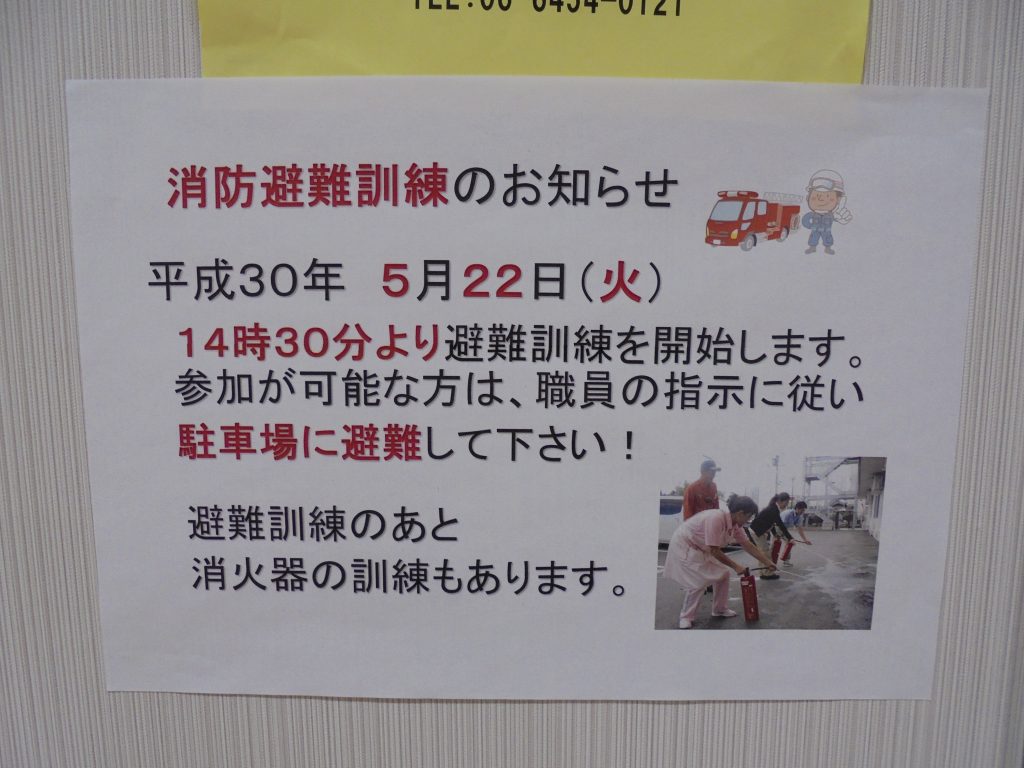 消防避難訓練のお知らせ
平成30年　5月22日(火)
14時30分より避難訓練を開始します。
参加が可能な方は、職員の指示に従い
駐車場に避難して下さい！
避難訓練のあと
消火器の訓練もあります。